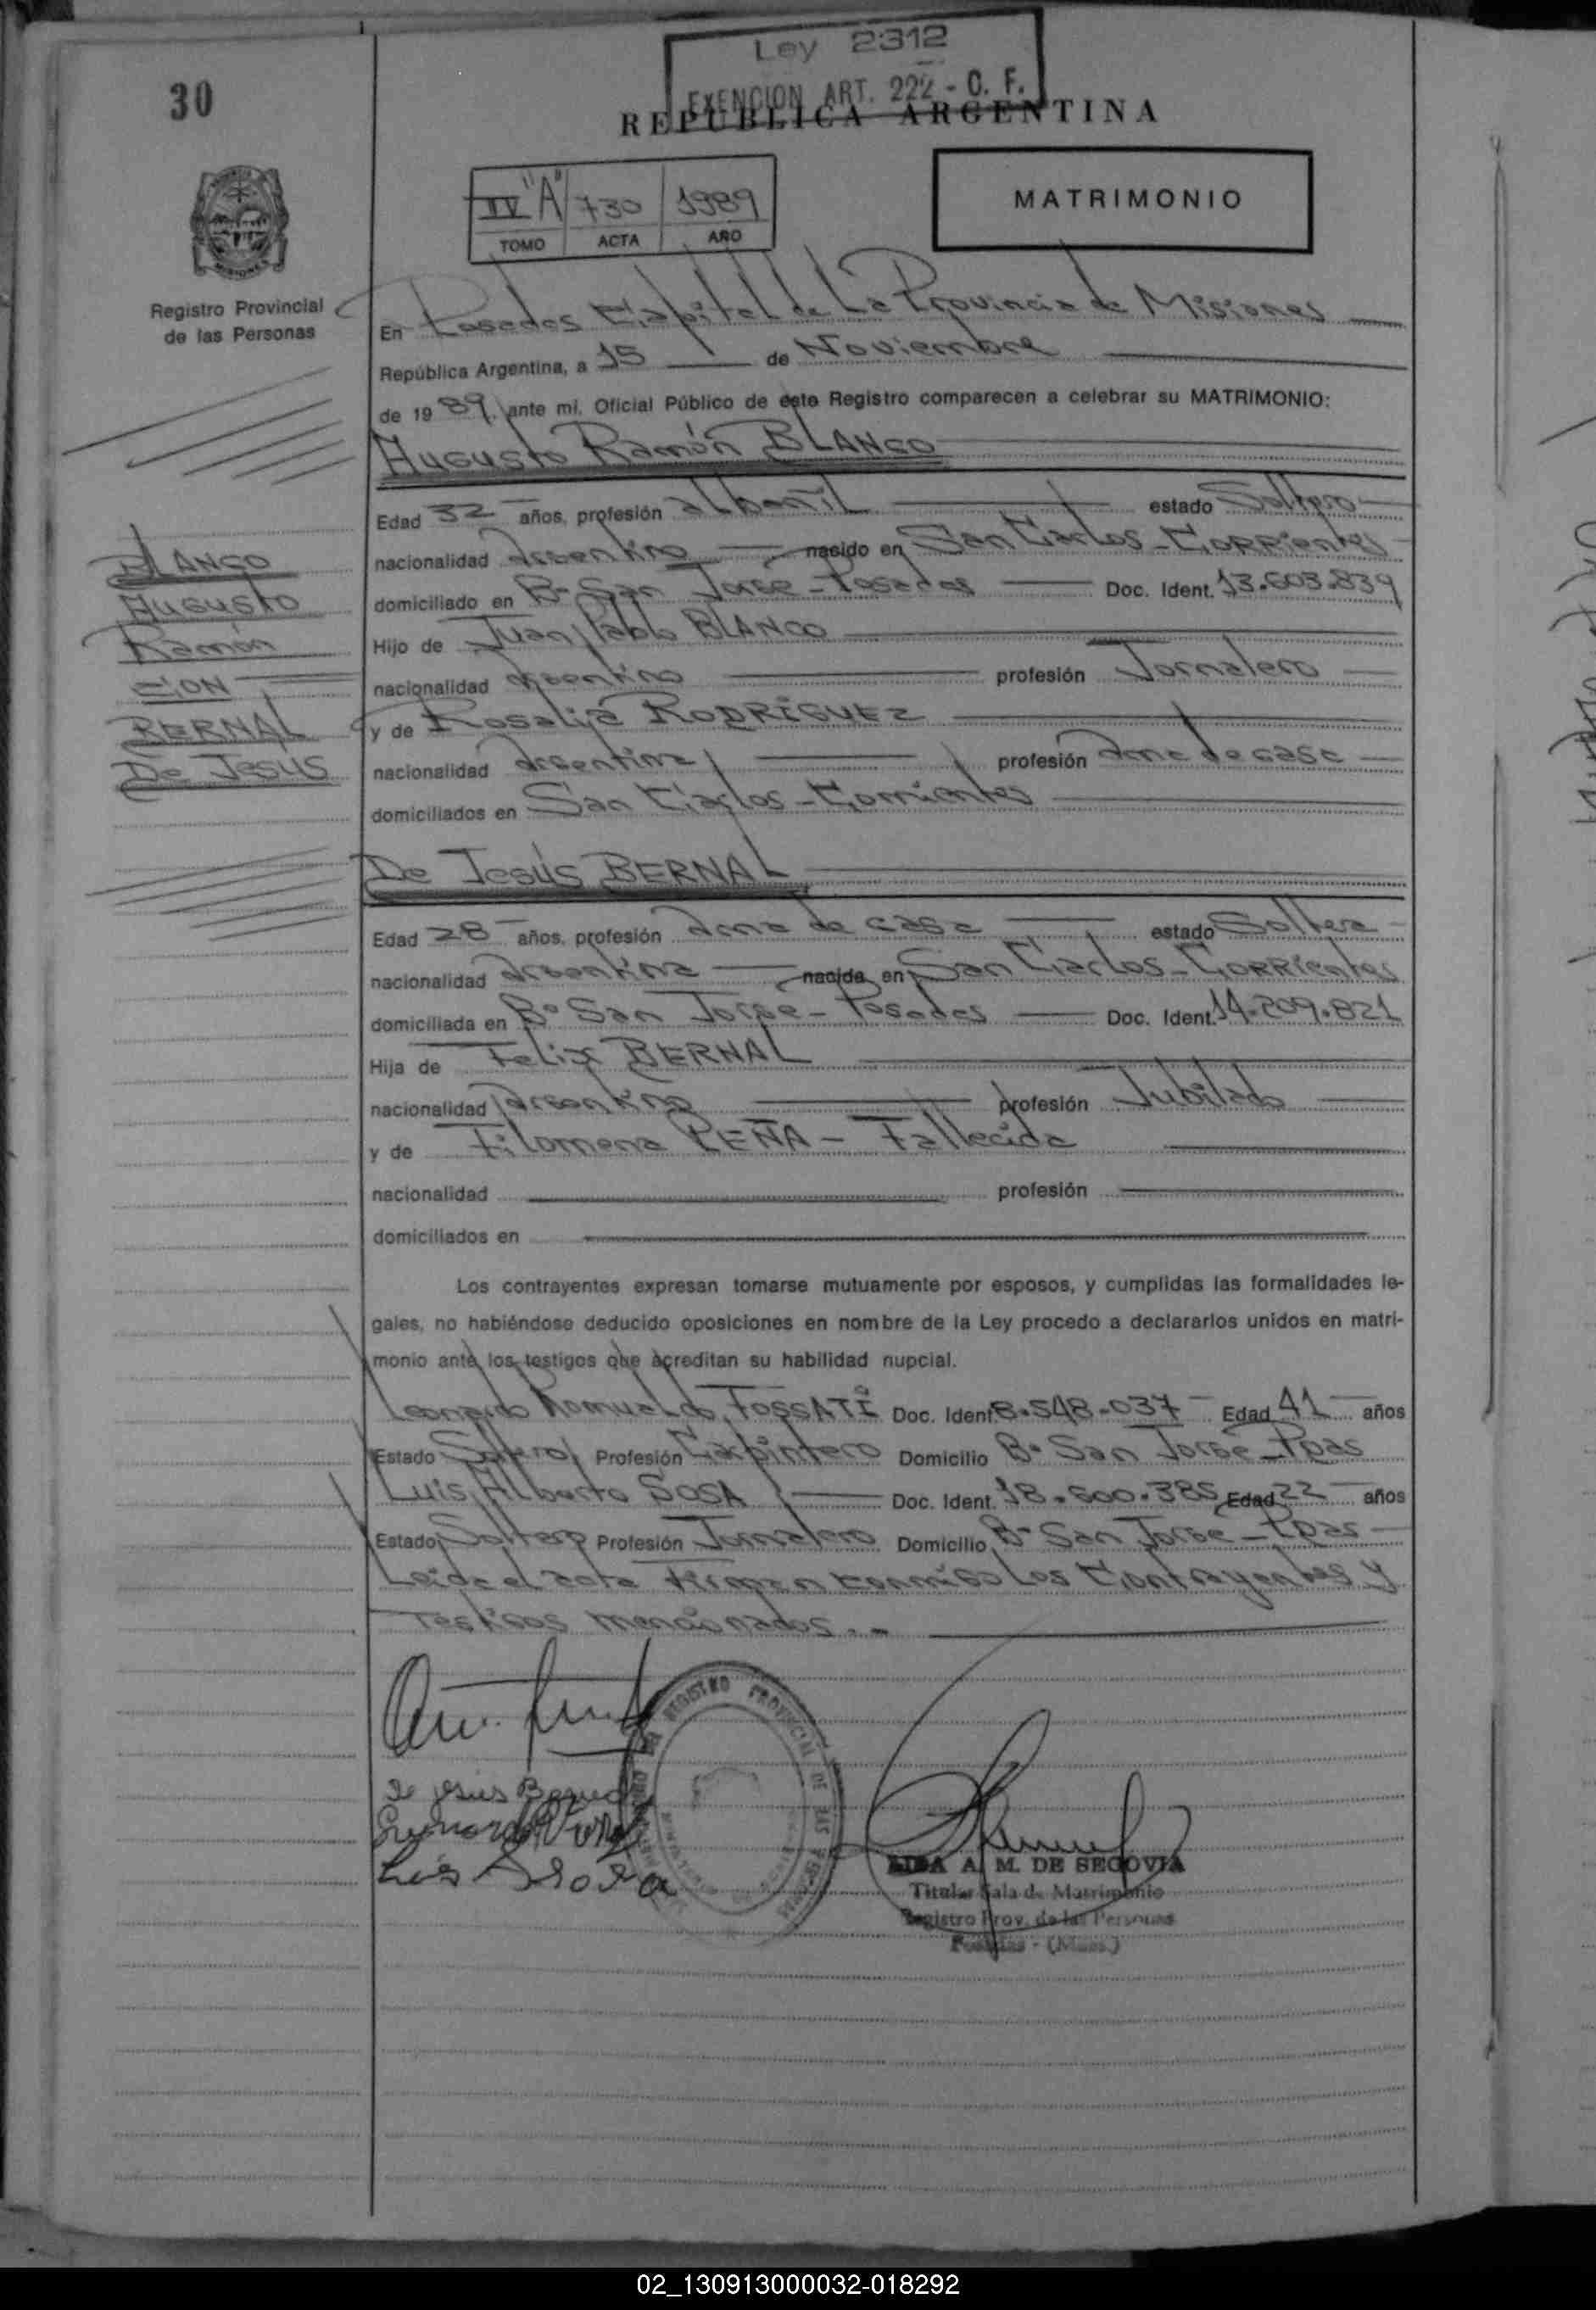 Ley 2312
EXENCION ART. 222 - C. F.
30
REPUBLICA ARGENTINA
IV "A" 730 1989
TOMO ACTA AÑO
MATRIMONIO
MISIONES
Registro Provincial
de las Personas
En Posadas Capital de La Provincia de Misiones
República Argentina, a 15 de Noviembre
de 1989. ante mi, Oficial Público de este Registro comparecen a celebrar su MATRIMONIO:
Augusto Ramón BLANCO
Edad 32 años, profesión albañil estado Soltero
nacionalidad argentino nacido en San Carlos - Corrientes
domiciliado en Bº San Jorge - Posadas Doc. Ident. 13.603.839
Hijo de Juan Pablo BLANCO
nacionalidad argentino profesión Jornalero
y de Rosalia RODRIGUEZ
nacionalidad argentina profesión ama de casa
domiciliados en San Carlos - Corrientes
BLANCO
Augusto
Ramón
CON
BERNAL
De Jesus
De Jesús BERNAL
Edad 28 años, profesión ama de casa estado Soltera
nacionalidad argentina nacida en San Carlos - Corrientes
domiciliada en Bº San Jorge - Posadas Doc. Ident. 14.209.821
Hija de Felix BERNAL
nacionalidad argentino profesión Jubilado
y de Filomena PEÑA - Fallecida
nacionalidad profesión
domiciliados en
Los contrayentes expresan tomarse mutuamente por esposos, y cumplidas las formalidades le-
gales, no habiéndose deducido oposiciones en nombre de la Ley procedo a declararlos unidos en matri-
monio ante los testigos que acreditan su habilidad nupcial.
Leonardo Romualdo FOSSATI Doc. Ident. 8.548.037 Edad 41 años
Estado Soltero Profesión Carpintero Domicilio Bº San Jorge - Pdas
Luis Alberto SOSA Doc. Ident. 18.600.385 Edad 22 años
Estado Soltero Profesión Jornalero Domicilio Bº San Jorge - Pdas
Leida el acta firman conmigo los Contrayentes y
Testigos mencionados..-
De Jesus Bernal
REGISTRO PROVINCIAL DE LAS PERSONAS
LIDA A. M. DE SEGOVIA
Titular Sala de Matrimonio
Registro Prov. de las Personas
Posadas - (Mnes.)
02_130913000032-018292